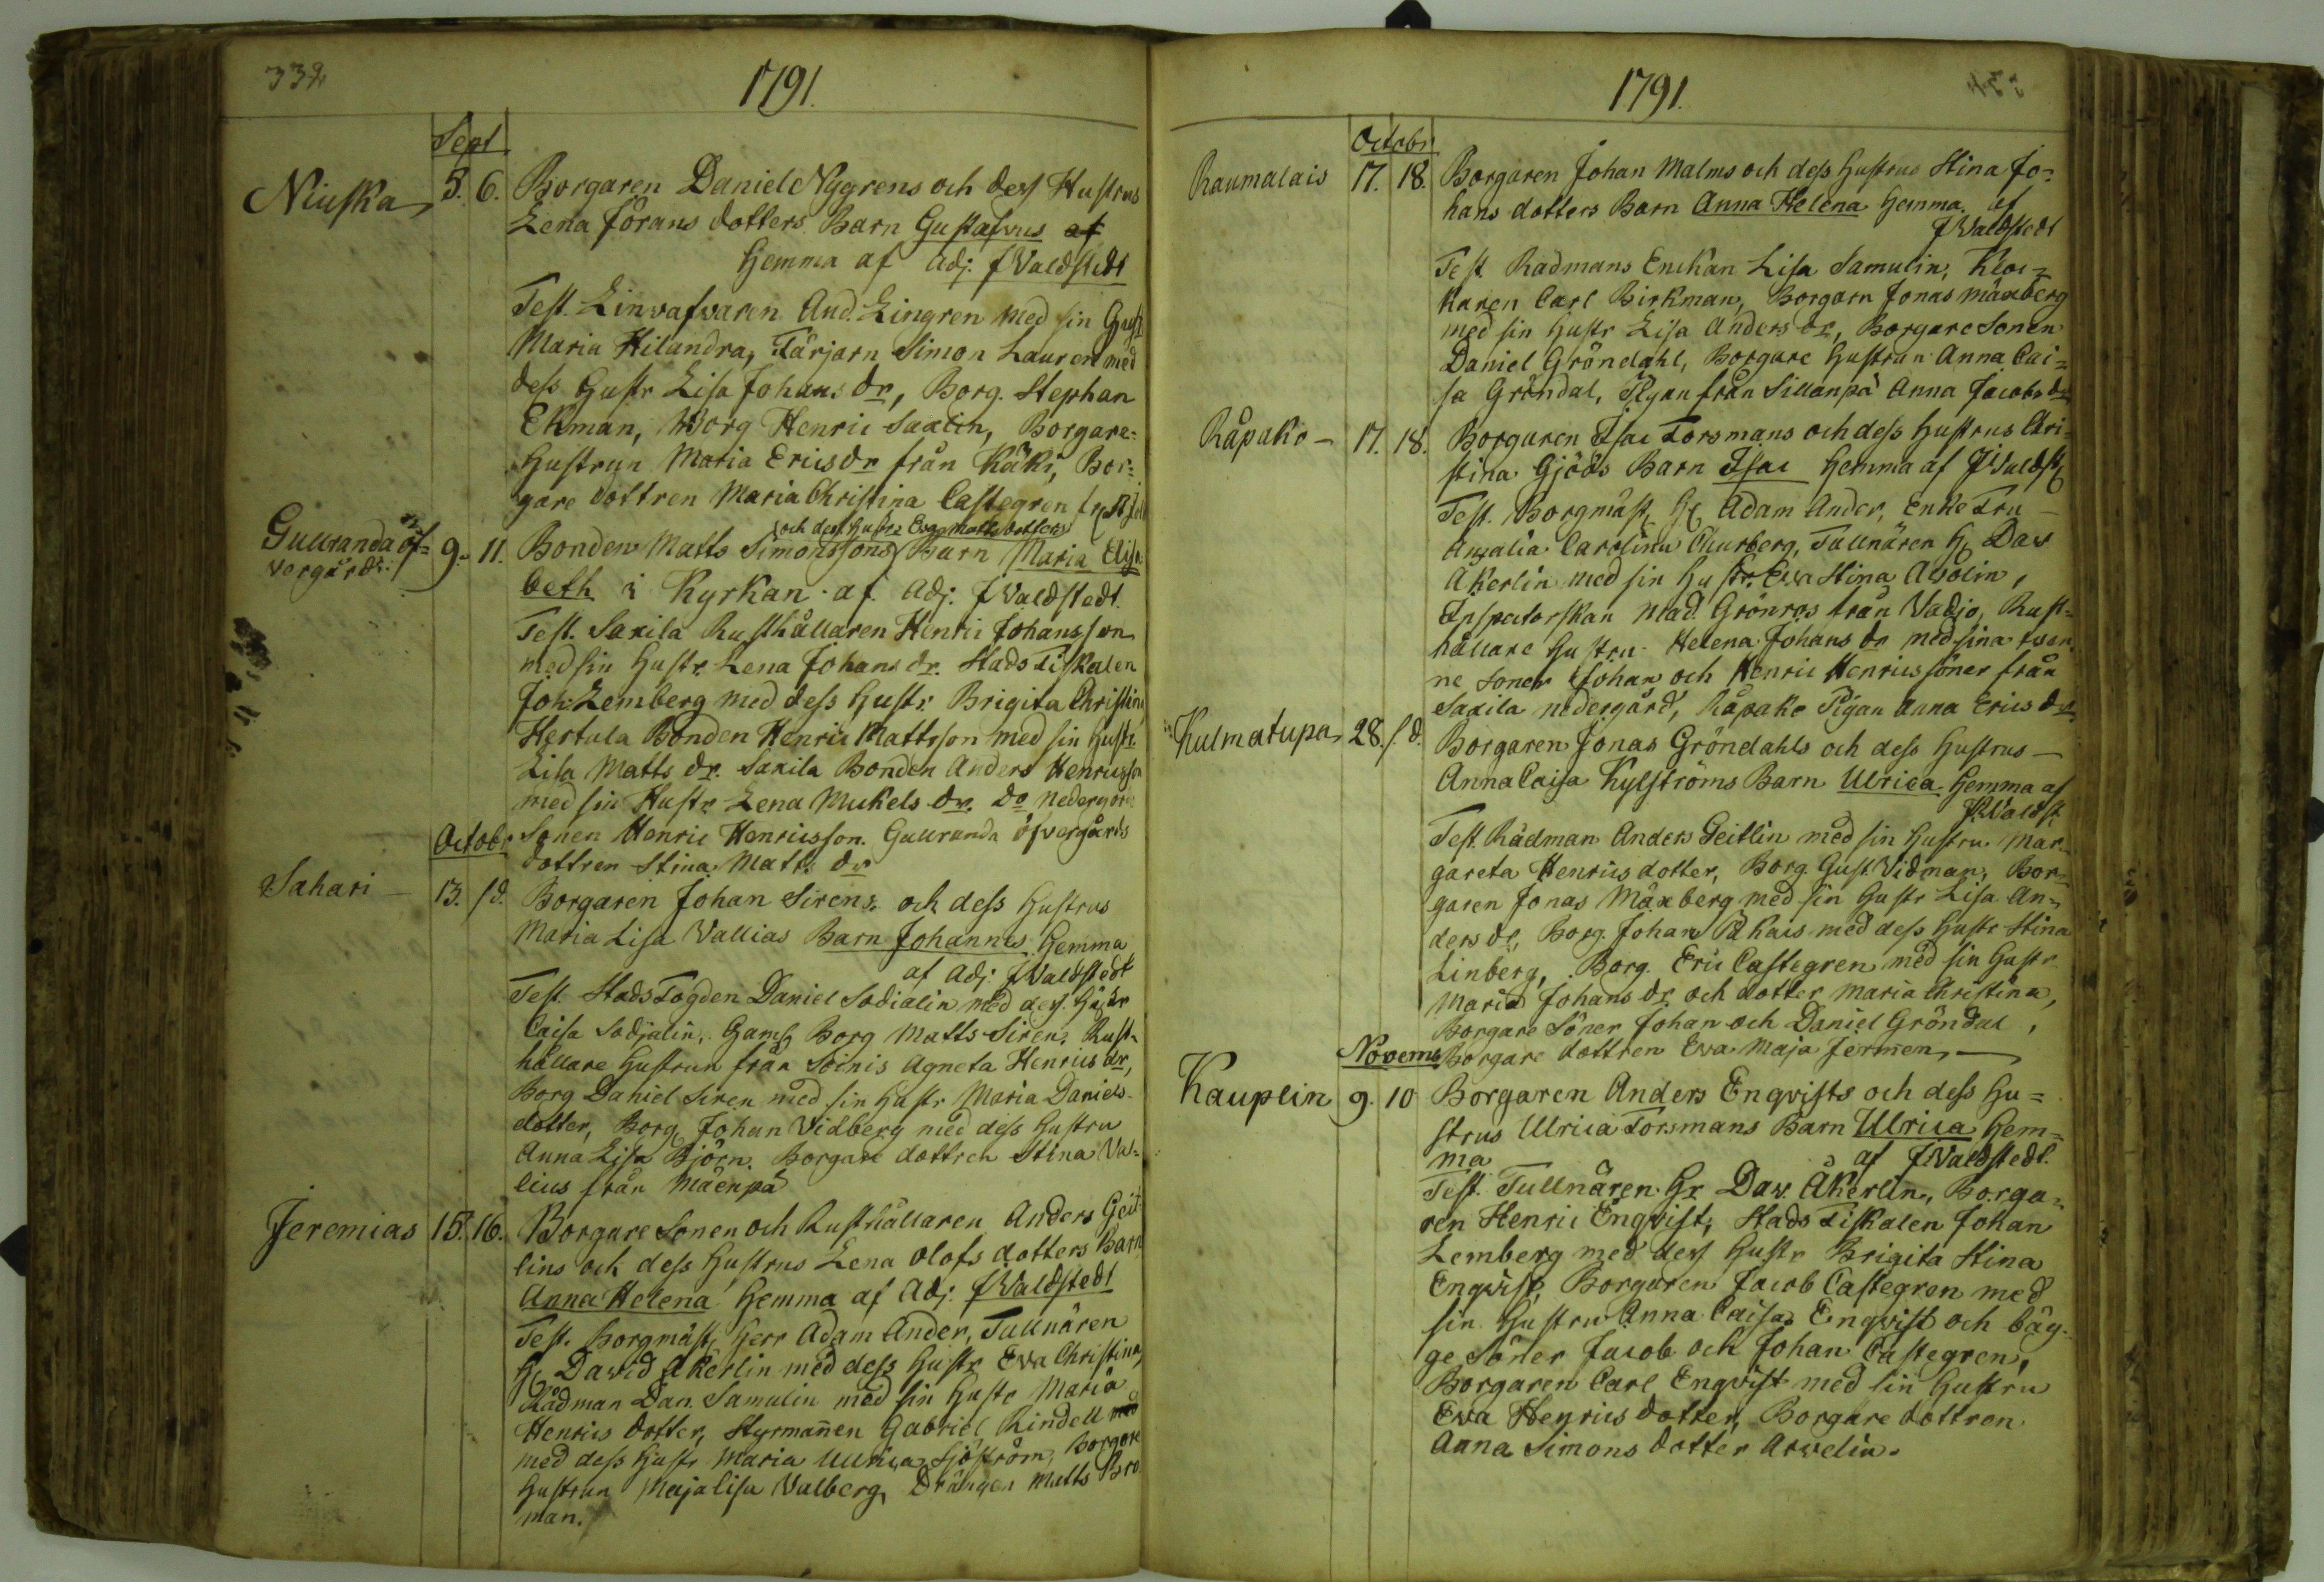 332
1791.
Sept
Niuska 5. 6. Borgaren Daniel Nygrens och dess Hustrus
Lena Jörans dotters Barn Gustafwus af
hemma af Adj. J Waldstedt
Test. Linwäfwaren And. Lingren med sin Hust
Maria Hilandra, Färjarn Simon Lauren med
dess Hustr Lisa Johans dr, Borg. Stephan
Ekman, Borg Henric Saxlin, Borgare-
Hustrun Maria Ericsdr från Käki, Bor-
gare dottren Maria Christina Castegren
och dess hustrs Eva Matts dotters
Gullranda öf-
vergård 9. 11. Bonden Matts Simonssons Barn Maria Elisa
beth i Kyrkan af Adj. J Waldstedt.
Test. Saxila Rusthållaren Henric Johansson
med sin Hustr. Lena Johans dr. Stads Fiskalen
Joh: Lemberg med dess Hustr. Brigita Christina
Hertula Bonden Henric Mattsson med sin Hustr.
Lisa Matts dr. Saxila Bonden Anders Henricsson
med sin Hustr. Lena Mickels dr. Do Nedergårds
Octobr Sonen Henric Henricsson. Gullranda öfvergårds
dottren Stina Matts dr
Sahari 13. s.d. Borgaren Johan Sirens och dess Hustrus
Maria Lisa Vallias Barn Johannes Hemma
af Adj. J Waldstedt
Test. Stads Fogden Daniel Sodialin med dess Hustr
Caisa Sodjalin, Gaml Borg Matts Siren, Rust-
hållare Hustrun från Soinis Agneta Henrics dr,
Borg Daniel Siren med sin Hustr Maria Daniels-
dotter, Borg Johan Vidberg med dess Hustru
Anna Lisa Björn. Borgare dottren Stina Val-
lius från Mäenpä
Jeremias 15. 16. Borgare Sonen och Rusthållaren Anders Geit-
lins och dess Hustrus Lena Olofs dotters Barn
Anna Helena Hemma af Adj. J Waldstedt
Test. Borgmäst Herr Adam Ander, Tullnären
H David Åkerlin med dess Hustr Eva Christina
Rådman Dan. Samulin med sin Hustr Maria
Henrics dotter, Styrmannen Gabriel Rindell
med dess Hustr Maria Ulrica Sjöström, Borgare
Hustrun Majalisa Valberg, Drängen Matts Bro
man.
1791.
Octobr
Raumalais 17. 18. Borgaren Johan Malms och dess Hustrus Stina Jo-
hans dotters Barn Anna Helena hemma af
J Waldstedt
Test. Radmans Enckan Lisa Samulin, Kloc-
karen Carl Birkman, Borgarn Jonas Mäxberg
med sin Hustr Lisa Anders dr, Borgare Sonen
Daniel Gröndahl, Borgare Hustrun Anna Cai-
sa Gröndal, Pigan från Sillanpä Anna Jacobs dr
Råpako 17. 18. Borgaren Isac Forsmans och dess Hustrus Cri-
stina Gjöös Barn Isac Hemma af J Waldst
Test. Borgmäst H Adam Ander, Enke Fru
Amalia Carolina Churberg, Tullnären H Dav
Åkerlin med sin Hustr. Eva Stina Asolin,
Inspectorskan Mad. Grönros från Vadjo, Rust-
hållare Hustru Helena Johans dr med sina twen
ne soner Johan och Henric Henrics söner från
Saxila nedergård, Råpako Pigan Anna Erics dr
Kulmatupa 28. s.d. Borgaren Jonas Gröndahls och dess Hustrus
Anna Caisa Kylströms Barn Ulrica Hemma af
J Waldst
Test. Rådman Anders Geitlin med sin Hustru Mar-
gareta Henrics dotter, Borg. Gust. Vidman, Bor-
garen Jonas Mäxberg med sin Hustr Lisa An-
ders dr, Borg. Johan Påkais med dess Hustr Stina
Linberg, Borg. Eric Castegren med sin Hustr
Maria Johans dr och dotter Maria Christina,
Borgare Söner Johan och Daniel Gröndal,
Novemr Borgare dottren Eva Maja Jermen,
Kauplin 9. 10 Borgaren Anders Engvists och dess Hu-
strus Ulrica Forsmans Barn Ulrica Hem-
ma af J Waldstedt.
Test. Tullnären Hr Dav. Åkerlin, Borga-
ren Henric Engvist, Stads Fiskalen Johan
Lemberg med dess Hustr Brigita Stina
Engvist, Borgaren Jacob Castegren med
sin Hustru Anna Caisa Engvist och bäg-
ge Söner Jacob och Johan Castegren,
Borgaren Carl Engvist med sin Hustru
Eva Henrics dotter, Borgare dottren
Anna Simons dotter Arvelin.